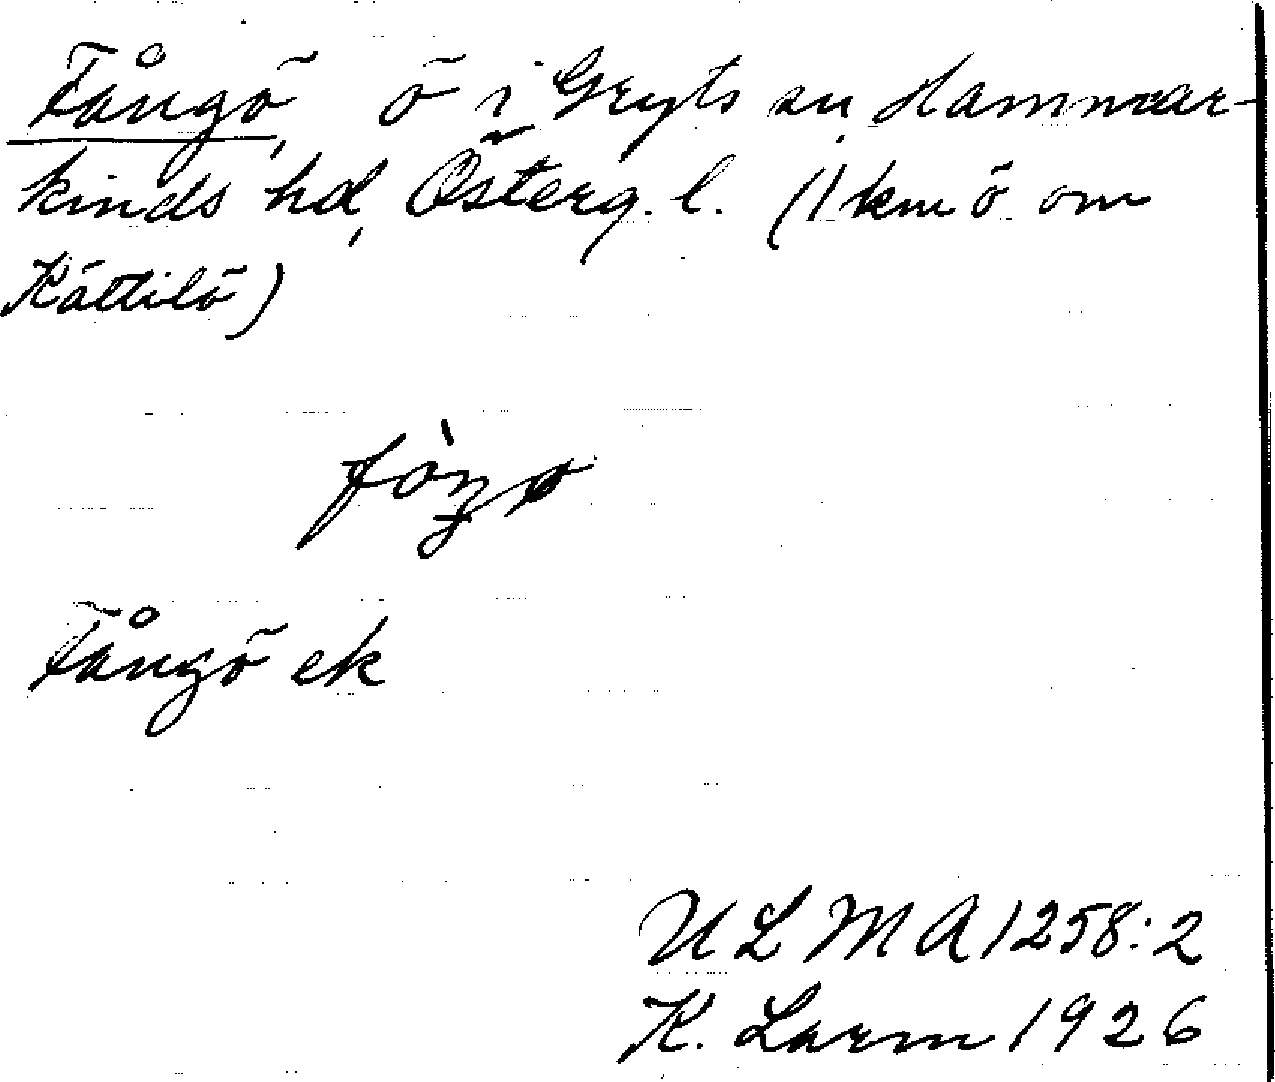 Fångö, ö i Gryts sn, Hammar-
kinds hd, Österg. l. (1 km ö om
Kättilö)
Fångö ek
ULMA 1258:2
K. Larm 1926